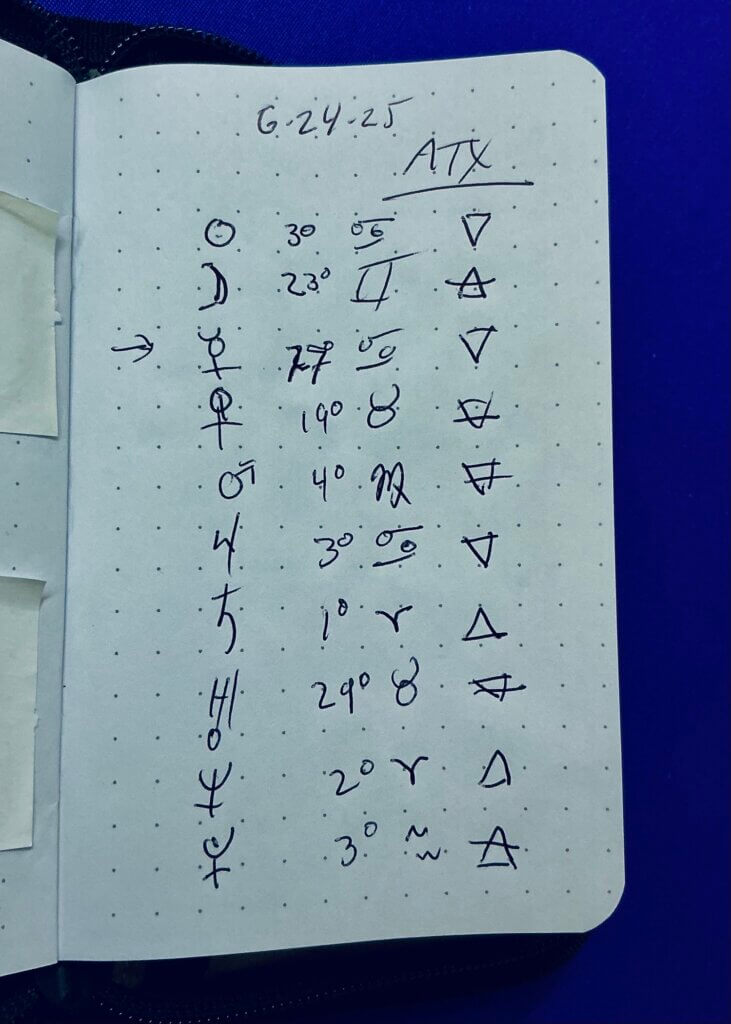 6·24·25
ATX
☉ 3° ♋ 🜄
☽ 23° ♊ 🜁
→ ☿ 27° ♋ 🜄
♀ 19° ♉ 🜃
♂ 4° ♍ 🜃
♃ 3° ♋ 🜄
♄ 1° ♈ 🜂
♅ 29° ♉ 🜃
♆ 2° ♈ 🜂
♇ 3° ♒ 🜁